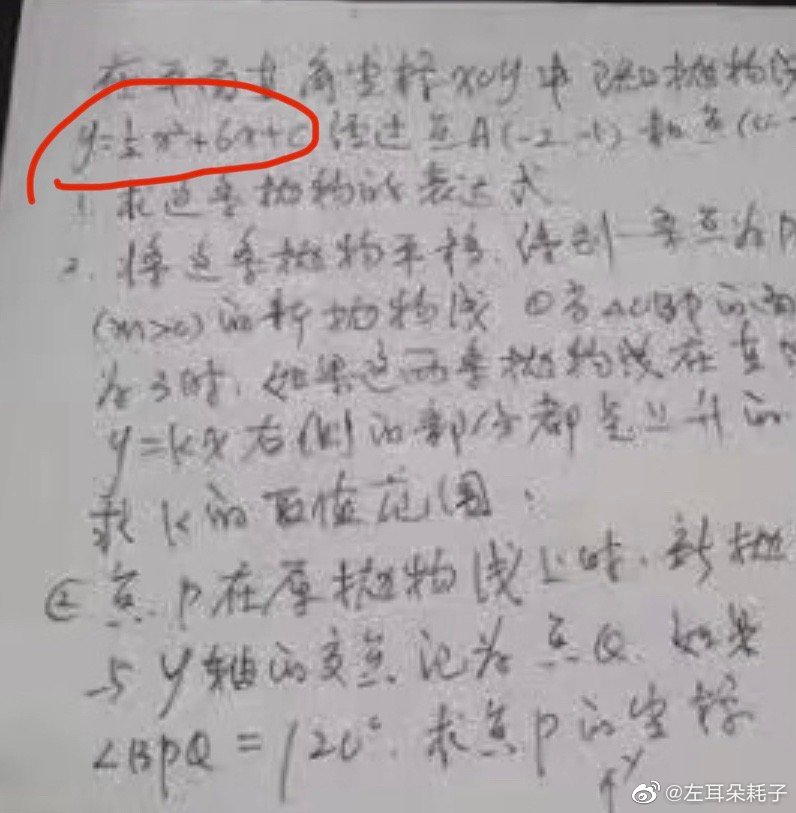 在平面直角坐标xoy中 已知抛物线
y=½x²+6x+c 经过点A(-2 -1) 和点(0 -
1. 求这条抛物的表达式
2. 将这条抛物平移. 得到一条点为P
(m>0) 的新抛物线 ①当△OBP的面
为3时. 如果这两条抛物线在直
y=kx右侧的部分都是上升的
求k的取值范围.
② 点P在原抛物线上时. 新抛
与y轴的交点记为点Q. 如果
∠BPQ=120°. 求点P的坐标
y
@左耳朵耗子